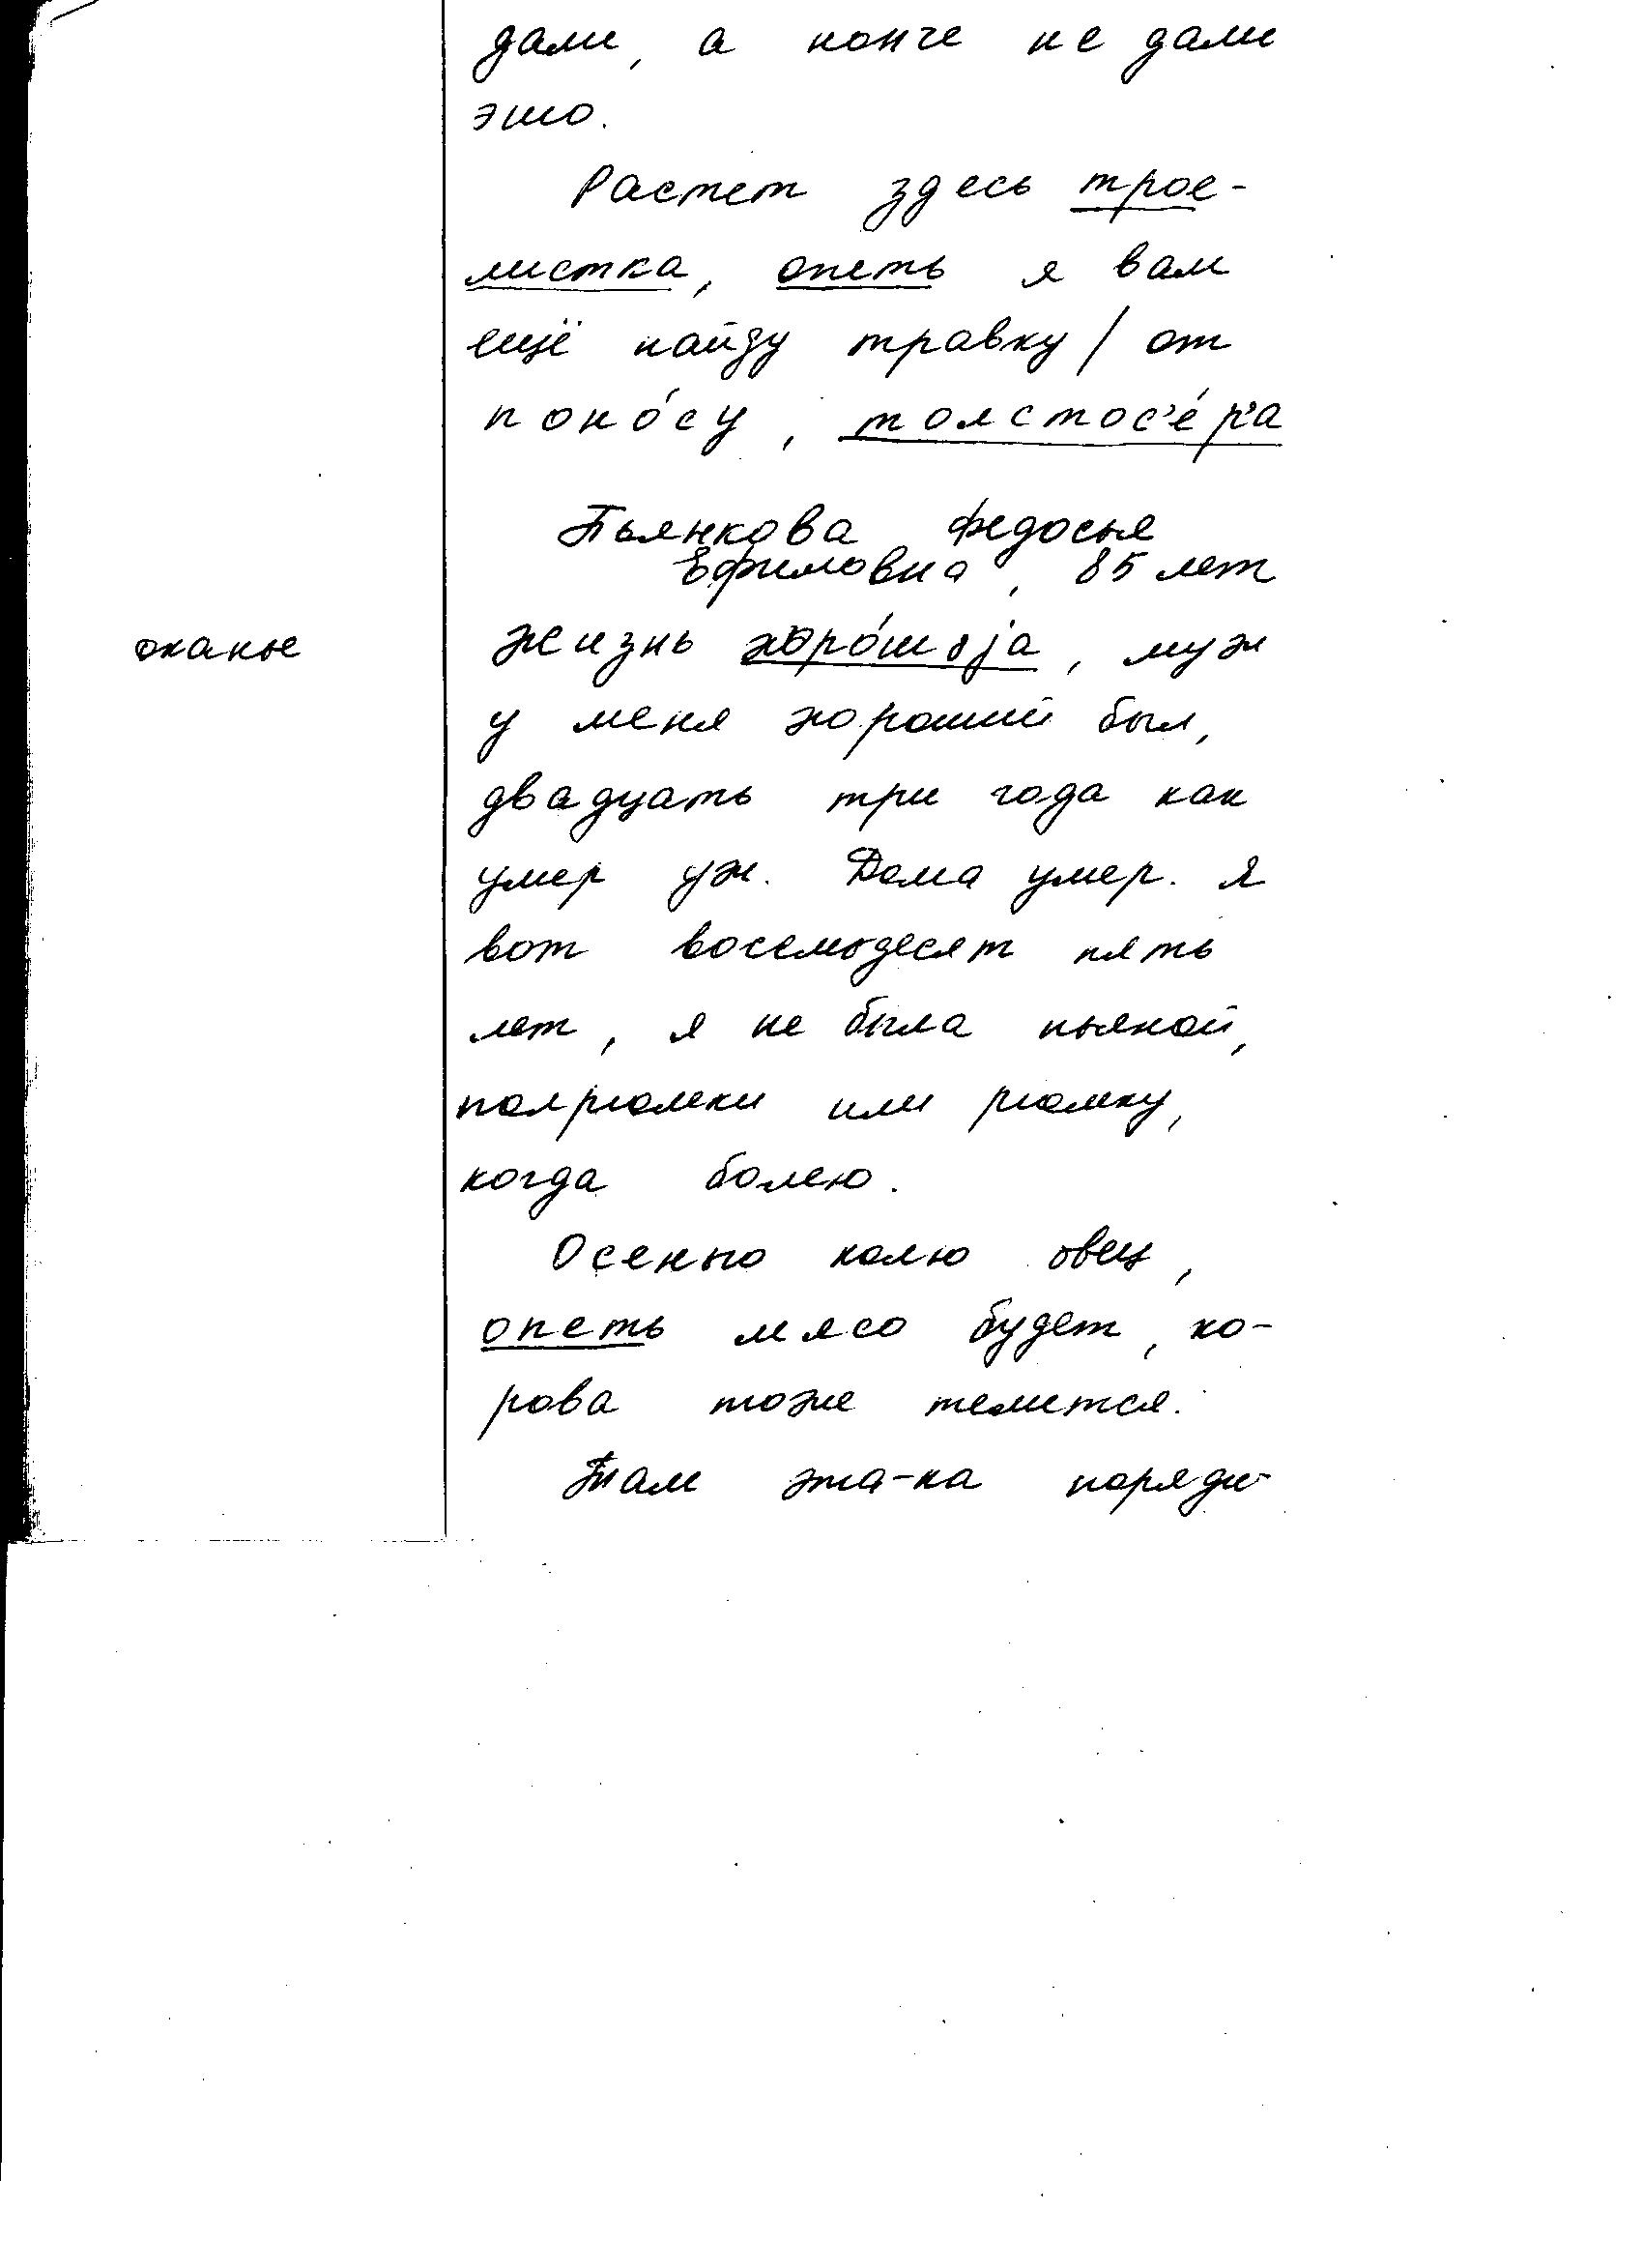 дали, а нонче не дали
это.
Растет здесь трое-
листка, опеть я вам
ещё найду травку / от
поно́су, толстос'е́р'а
Пьянкова Федосья
Ефимовна, 85 лет
оканье
Жизнь хоро́шоjа, муж
у меня хороший был,
двадцать три года как
умер уж. Дома умер. Я
вот восемьдесят пять
лет, я не была пьяной,
полрюмки или рюмку,
когда болею.
Осенью колю овец,
опеть мясо будет, ко-
рова тоже телится.
Там эта-ка поряди-